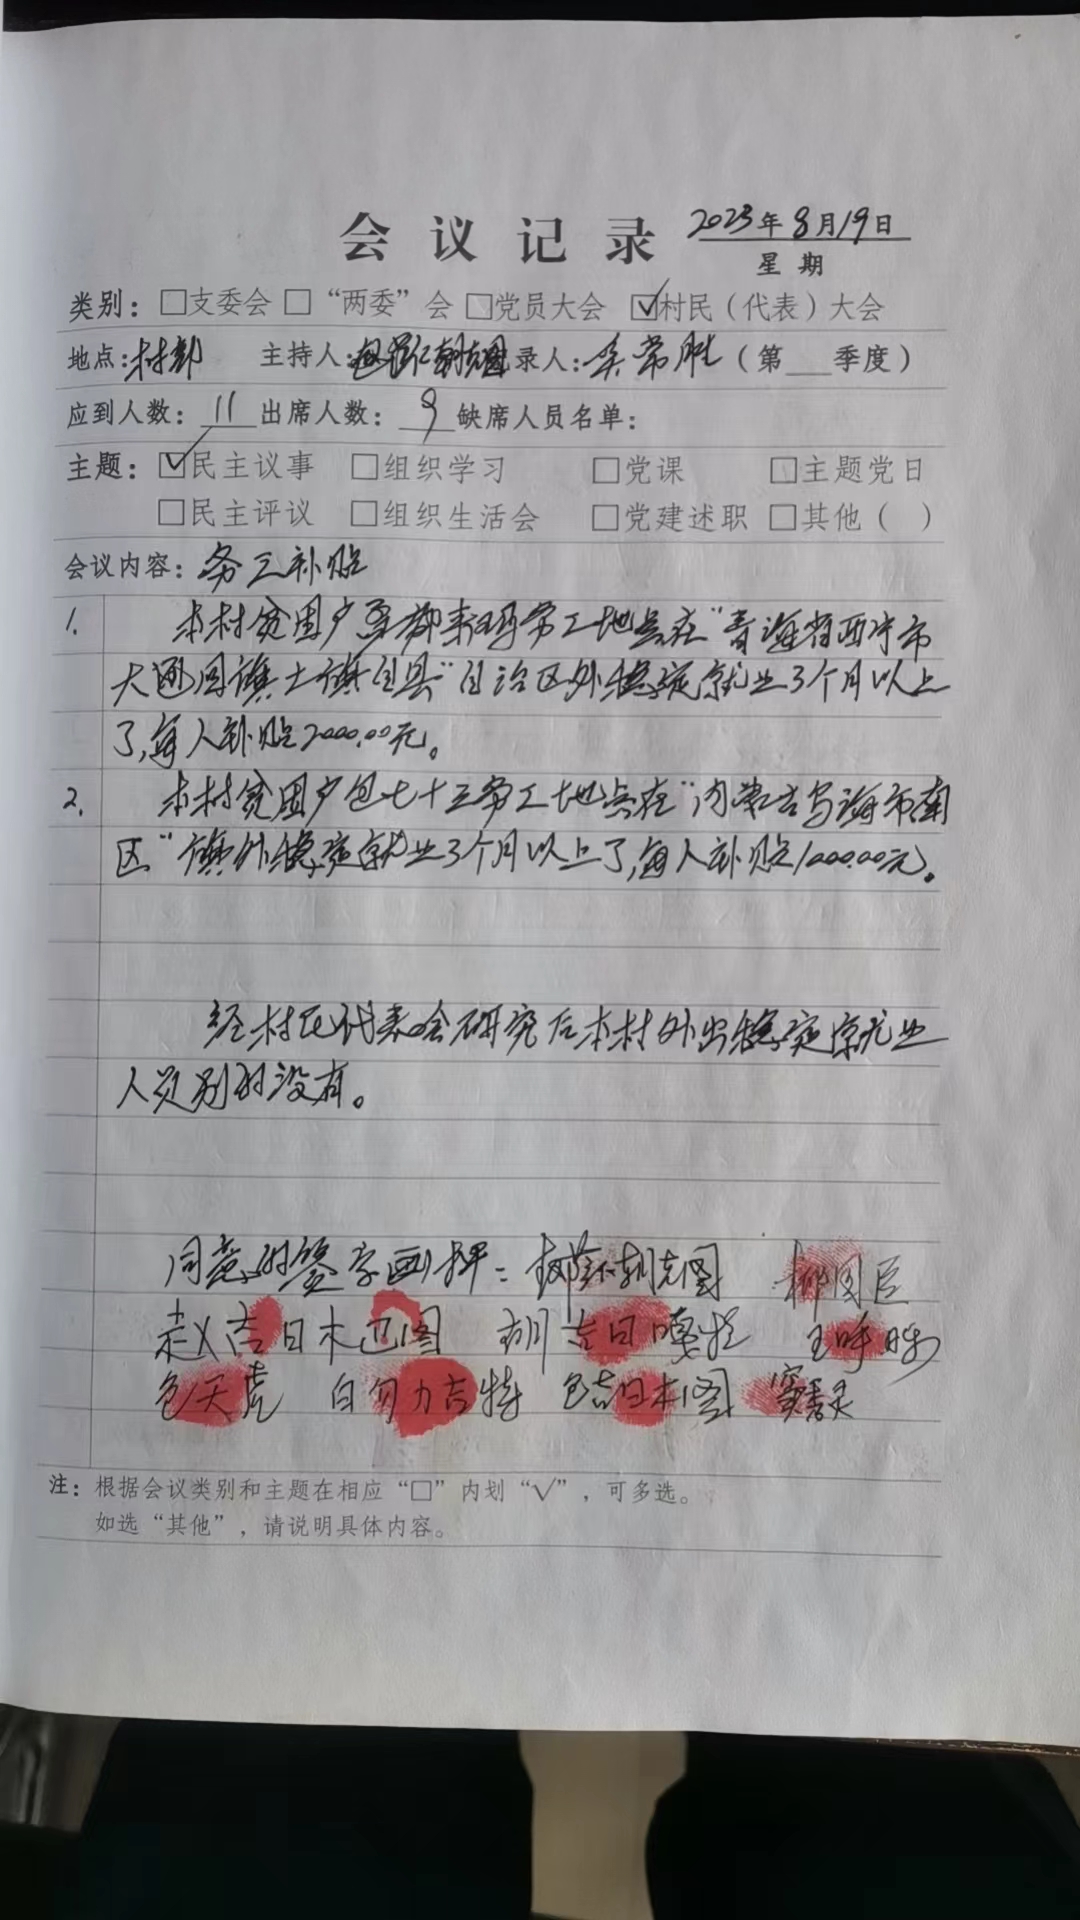 会议记录 2023年8月19日
星期
类别：□支委会 □“两委”会 □党员大会 ☑村民（代表）大会
地点：村部 主持人： 录人：吴常胜（第___季度）
应到人数：11 出席人数：9 缺席人员名单：
主题：☑民主议事 □组织学习 □党课 □主题党日
□民主评议 □组织生活会 □党建述职 □其他（ ）
会议内容：务工补贴
1. 本村贫困户 务工地点在“青海省西宁市
大通回族土族自县”自治区外稳定就业3个月以上
了，每人补贴2000.00元。
2. 本村贫困户包七十三务工地点在“内蒙古乌海市南
区”旗外稳定就业3个月以上了，每人补贴1000.00元。
经村民代表会研究后本村外出稳定就业
人员别的没有。
同意的签字画押：朝克图
吉日木图 胡吉日嘎拉 王呼
包天虎 白勿力吉特 包吉日木图
注：根据会议类别和主题在相应“□”内划“√”，可多选。
如选“其他”，请说明具体内容。